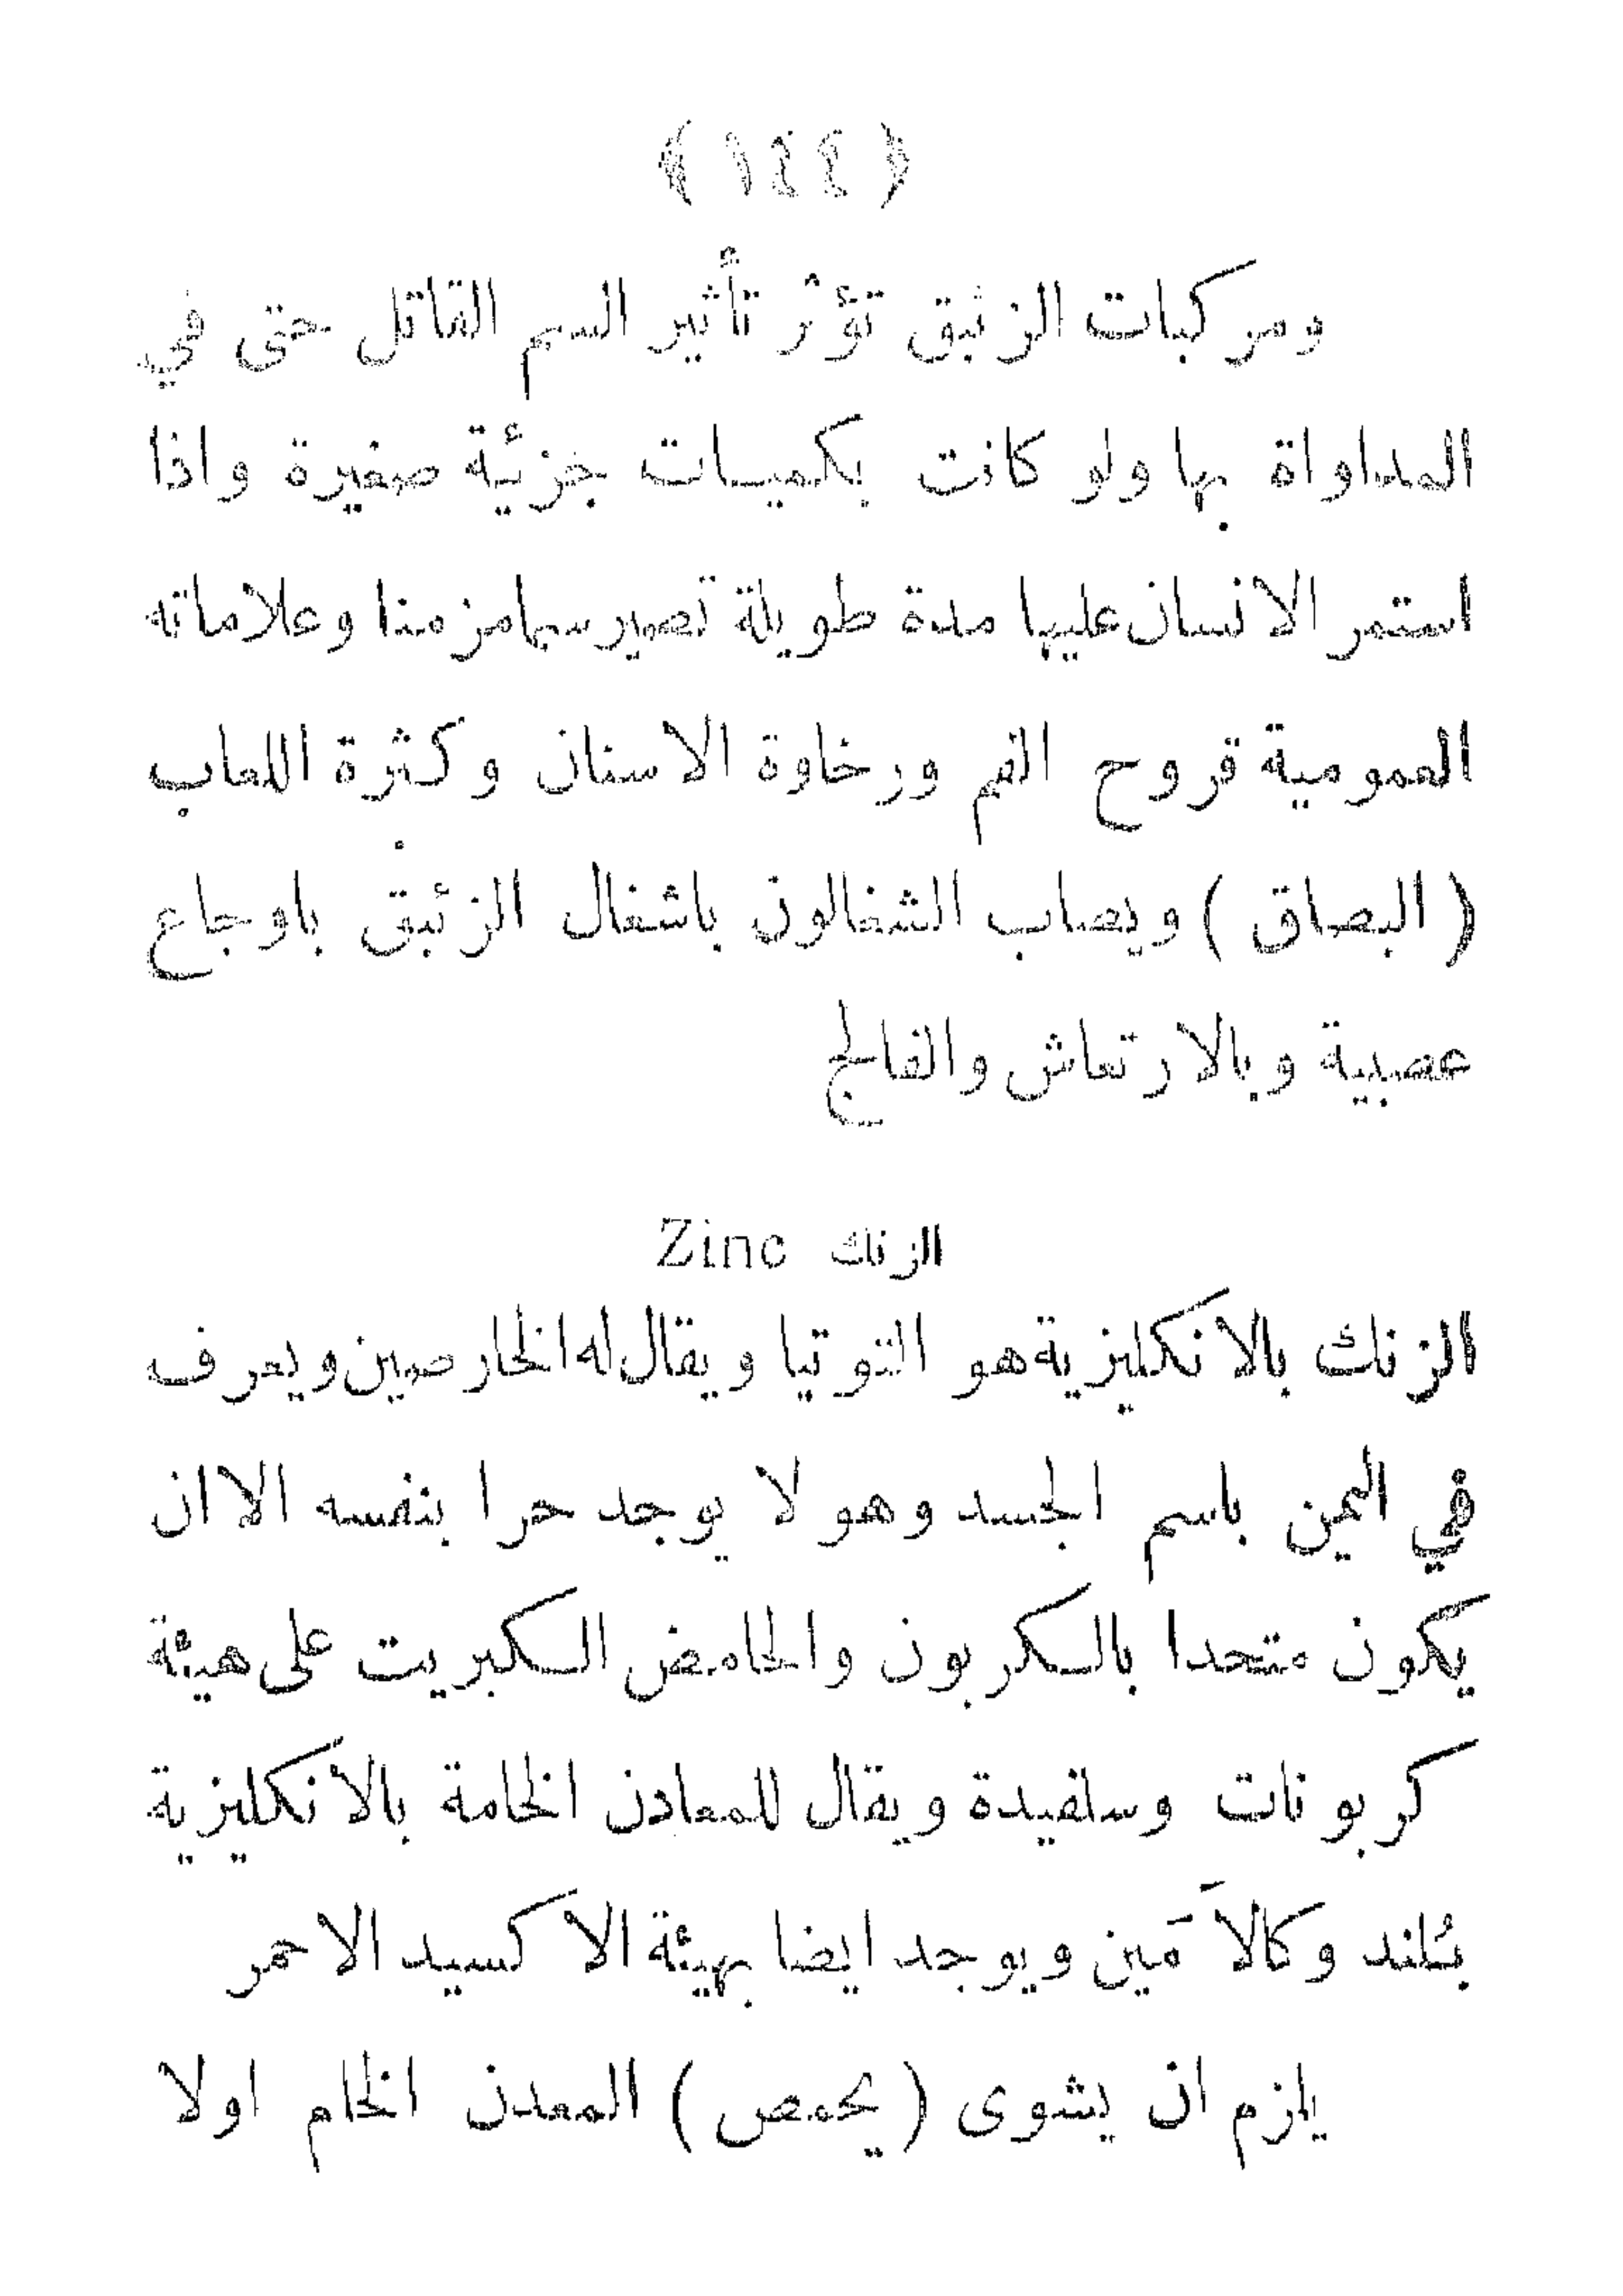 (١٤٤)
ومركبات الزئبق تؤثر تأثير السم القاتل حتى في
المداواة بها ولو كانت بكميات جزئية صغيرة واذا
استمر الانسان عليها مدة طويلة تصير سما مزمنا وعلاماته
العمومية قروح الفم ورخاوة الاسنان وكثرة اللعاب
(البصاق) ويصاب الشغالون باشغال الزئبق باوجاع
عصبية وبالارتعاش والفالج
الزنك Zinc
الزنك بالانكليزية هو التوتيا ويقال له الخارصين ويعرف
في اليمن باسم الجسد وهو لا يوجد حرا بنفسه الا ان
يكون متحدا بالكربون والحامض الكبريت على هيئة
كربونات وسلفيدة ويقال للمعادن الخامة بالانكليزية
بُلند وكالاَمَين ويوجد ايضا بهيئة الاكسيد الاحمر
يلزم ان يشوى (يحمص) المعدن الخام اولا